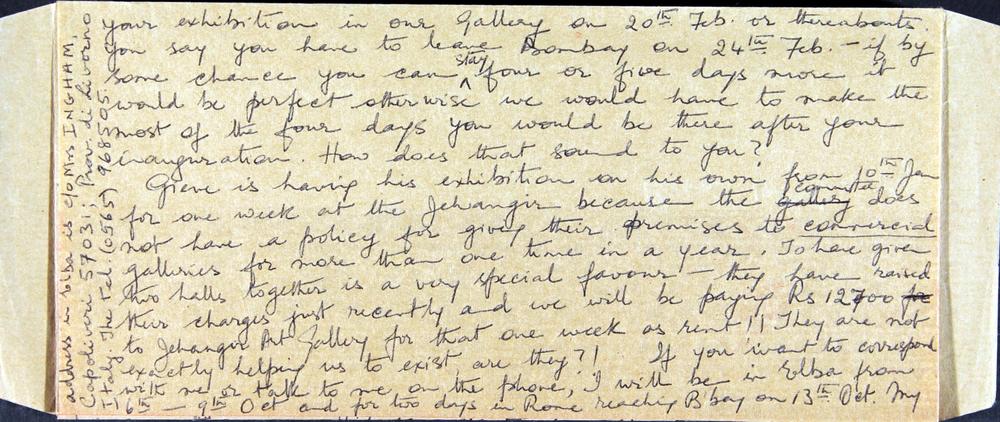 your exhibition in our Gallery on 20th Feb. or thereabouts.
You say you have to leave Bombay on 24th Feb. – if by
some chance you can stay four or five days more it
would be perfect otherwise we would have to make the
most of the four days you would be there after your
inauguration. How does that sound to you?
Gieve is having his exhibition on his own from 10th Jan
for one week at the Jehangir because the gallery committee does
not have a policy for giving their premises to commercial
galleries for more than one time in a year. To have given
two halls together is a very special favour – they have raised
their charges just recently and we will be paying Rs 12700 for
to Jehangir Art Gallery for that one week as rent!! They are not
exactly helping us to exist, are they?! If you want to correspond
with me or talk to me on the phone, I will be in Elba from
6th – 9th Oct and for two days in Rome reaching B'bay on 13th Oct. My
address in Elba is c/o Mrs INGHAM,
Capoliveri 57031; Prov. di Livorno
Italy. The tel. (0565) 968305.